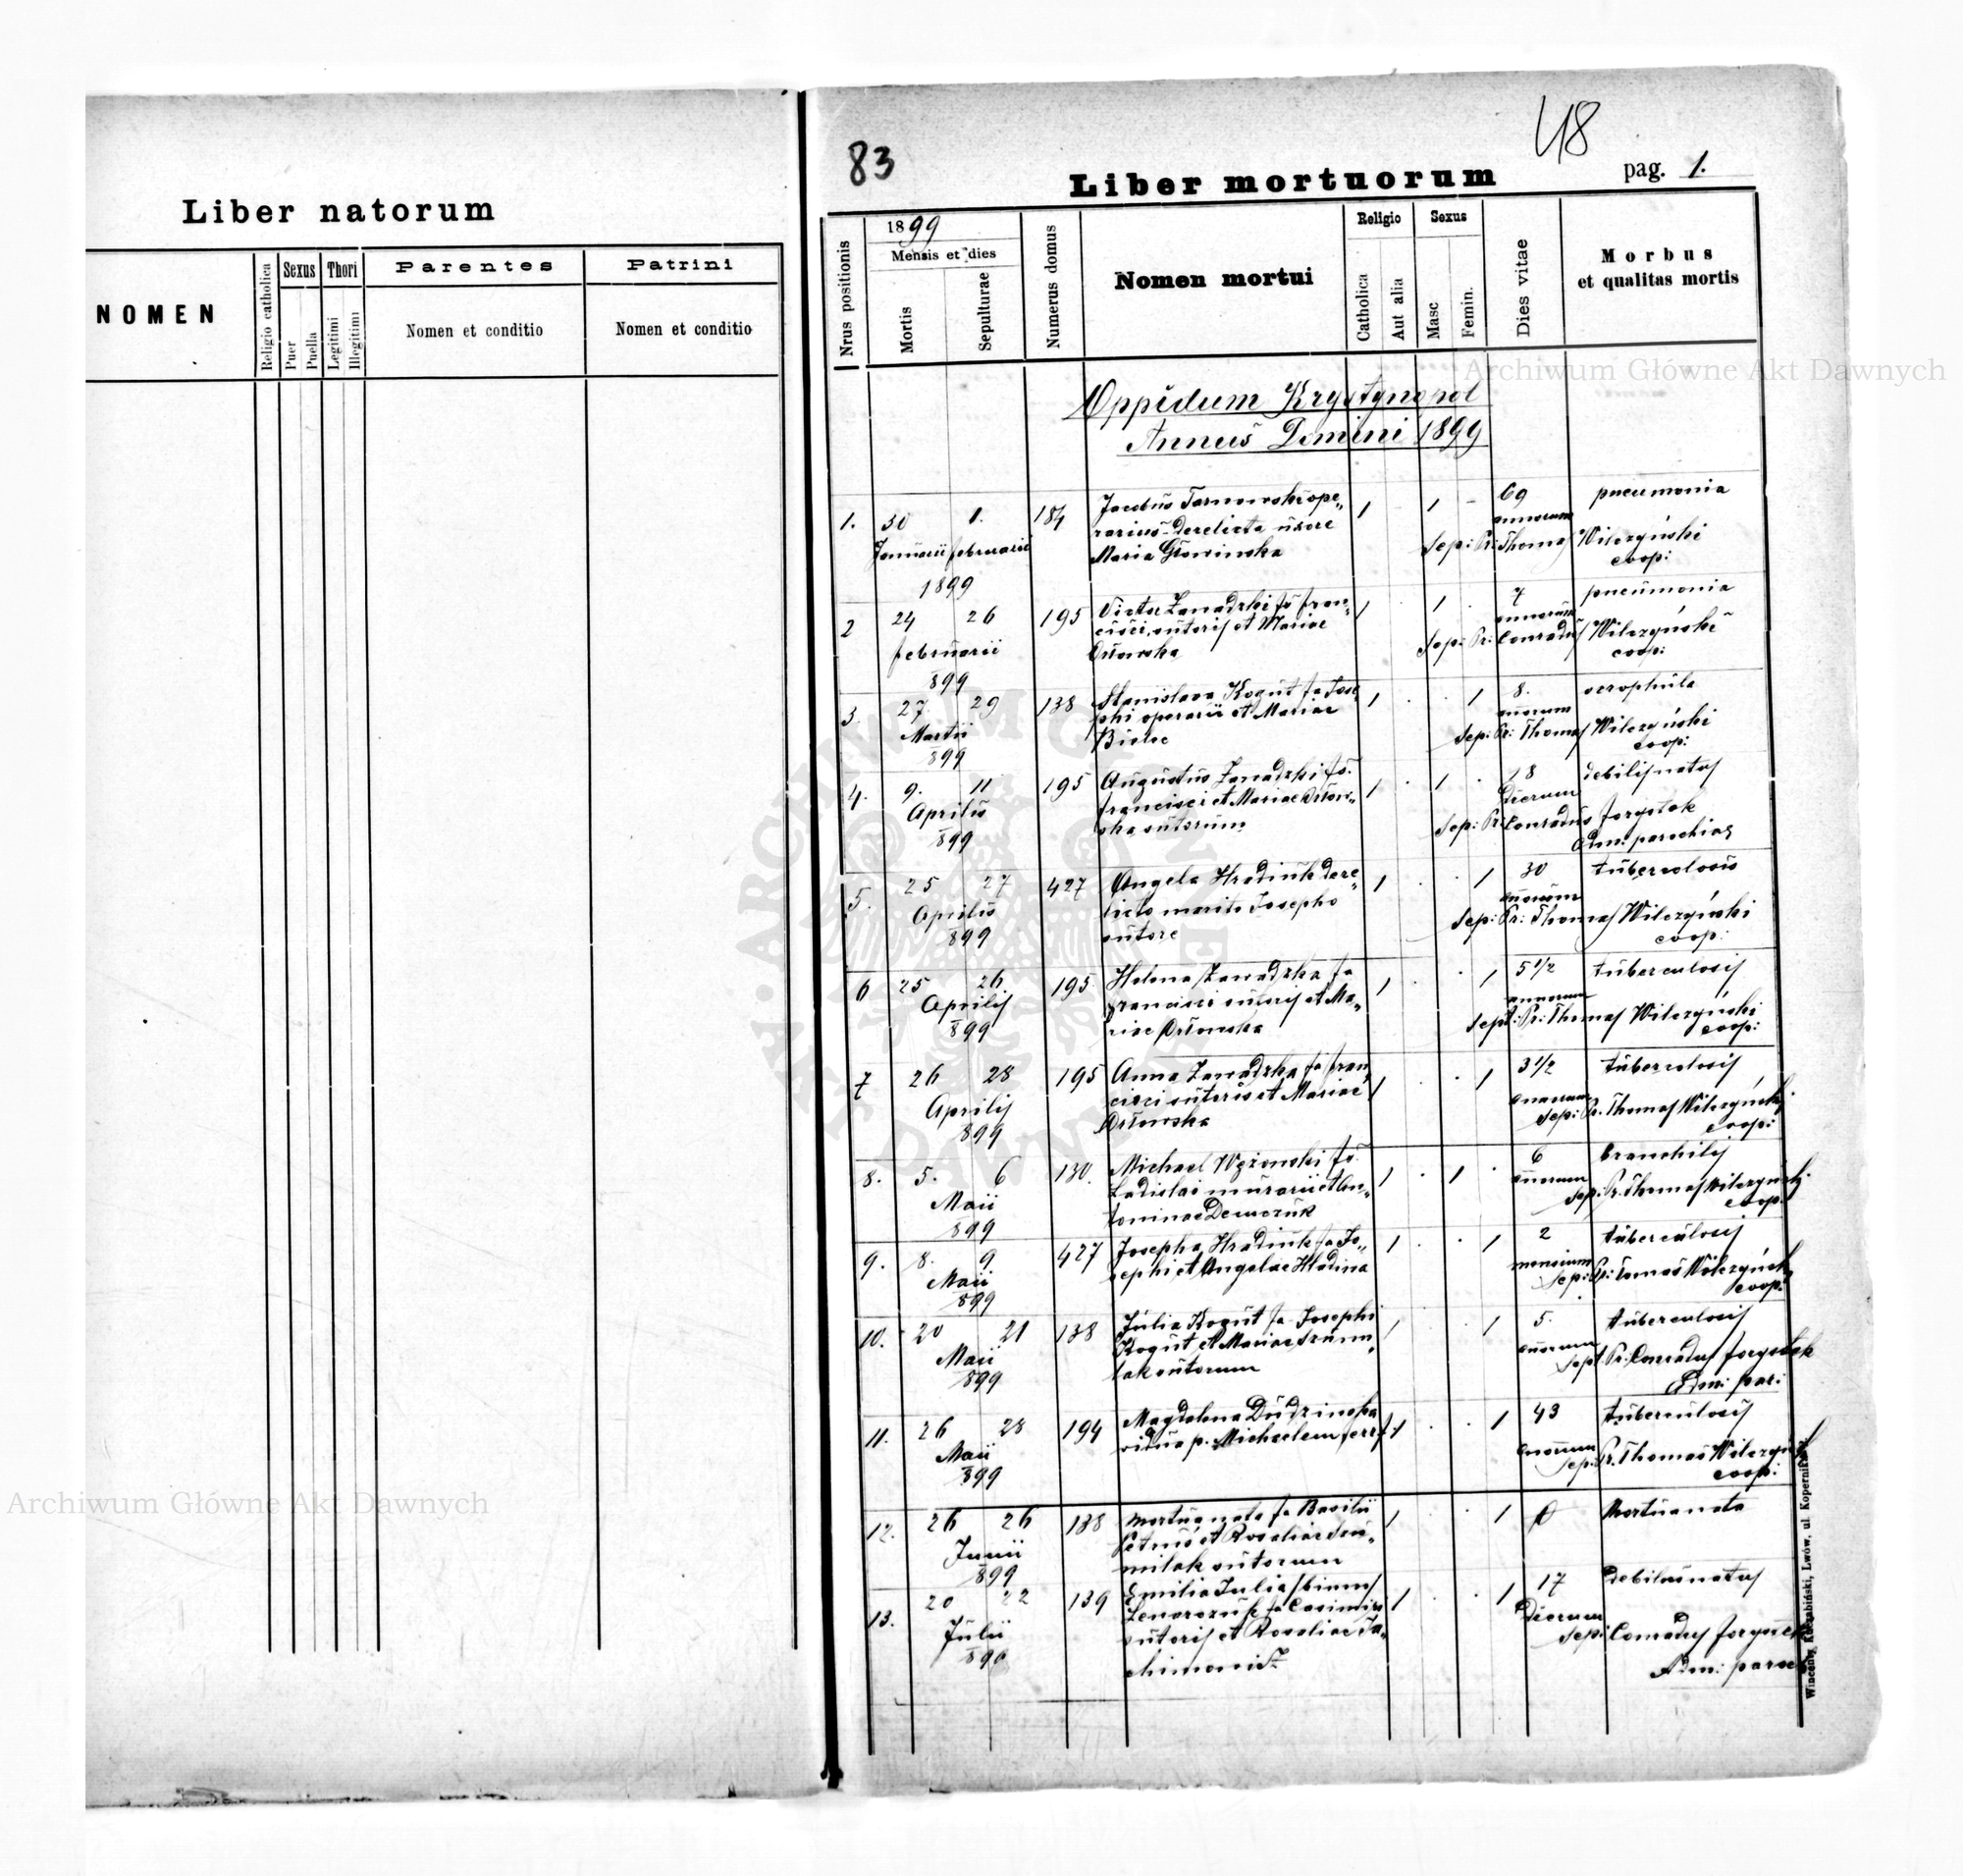 Liber natorum
NOMEN
Religio catholica
Sexus
Puer
Puella
Thori
Legitimi
Illegitimi
Parentes
Nomen et conditio
Patrini
Nomen et conditio
83
48
Liber mortuorum
pag. 1.
Nrus positionis
1899
Mensis et dies
Mortis
Sepulturae
Numerus domus
Nomen mortui
Religio
Catholica
Aut alia
Sexus
Masc
Femin.
Dies vitae
Morbus
et qualitas mortis
Oppidum Krystynopol
Annus Domini 1899
1. 30 1. 184 Jacobus Tarnowski ope„ 1 1 - 69 pneumonia
Januarii februarii rarius derelicta uxore annorum
1899 Maria Głowinska Sep: Pr: Thomas Wilczyński
coop:
2 24 26 195 Victor Zawadzki fs fran„ 1 . 1 . 7 pneumonia
februarii cisci sutoris et Mariae annorum
899 Orłowska Sep: Pr: Conradus Wilczyński
coop:
3. 27. 29 138 Stanislava Kogut fa Jose 1 . . 1 8. scrophula
Martii phi operarii et Mariae annorum
899 Bielec Sep: Pr: Thomas Wilczyński
coop:
4. 9. 11 195 Augustus Zawadzki fs. 1 . 1 . 28 debilis natus
Aprilis francisci et Mariae Orłow„ dierum
899 ska sutorum Sep: Pr. Conradus
Adm: parochiae
5. 25 27 427 Angela Hradiuk dere„ 1 . . 1 30 tuberculosis
Aprilis licto marito Josepho annorum
899 sutore Sep: Pr: Thomas Wilczyński
coop:
6 25 26 195 Helena Zawadzka fa 1 . 1 5 1/2 tuberculosis
Aprilis francisci sutoris et Ma„ annorum
899 riae Orłowska Sept: Pr: Thomas Wilczyński
coop:
7 26 28 195 Anna Zawadzka fa fran 1 . . 1 3 1/2 tuberculosis
Aprilis cisci sutoris et Mariae annorum
899 Orłowska Sep: Pr. Thomas Wilczyński
coop:
8. 5. 6 130. Michael fs. 1 . 1 . 6
Maii Ladislai murarii et An„ annorum
899 toninae Sep: Pr. Thomas Wilczyński
coop:
9. 8. 9 427 Josepha Hradiuk fa Jo„ 1 . . 1 2 tuberculosis
Maii sephi et Angelae Hladina mensium
899 Sep: Pr: Tomas Wilczyński
coop:
10. 20 21 138 Julia Kogut fa Josephi 1 . . 1 5. tuberculosis
Maii Kogut et Mariae annorum
899 sutorum Sept. Pr. Conradus
Adm: par:
11. 26 28 194 Magdalena Dudzinska 1 . . 1 43 tuberculosis
Maii vidua p. Michaelem annorum
899 Sep: Pr. Thomas Wilczyński
coop:
12. 26 26 138 mortua nata fa Basilii 1 . . 1 0 Mortua nata
Junii et Rosaliae
899 sutorum
13. 20 22 139 Emilia Julia 1 . . 1 17 debilis natus
Julii fa Casimiri dierum
sutoris et Rosaliae Ja„ Sep: Conradus
chimowicz Adm: paroc
Wincenty Kuczabiński, Lwów, ul. Kopernika
Archiwum Główne Akt Dawnych
Archiwum Główne Akt Dawnych
ARCHIWUM GŁÓWNE AKT DAWNYCH